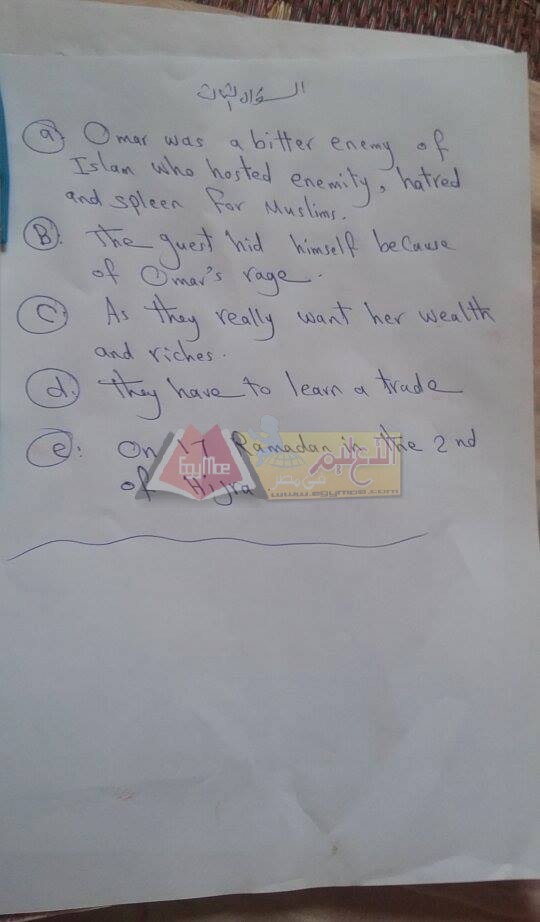 السؤال الثالث
a Omar was a bitter enemy of
Islam who hosted enemity, hatred
and spleen for Muslims.
B. The guest hid himself because
of Omar's rage.
C As they really want her wealth
and riches.
d. they have to learn a trade
e: On 17 Ramadan in the 2nd
of Hijra.
التعليم
في مصر
egymoe
www.egymoe.com